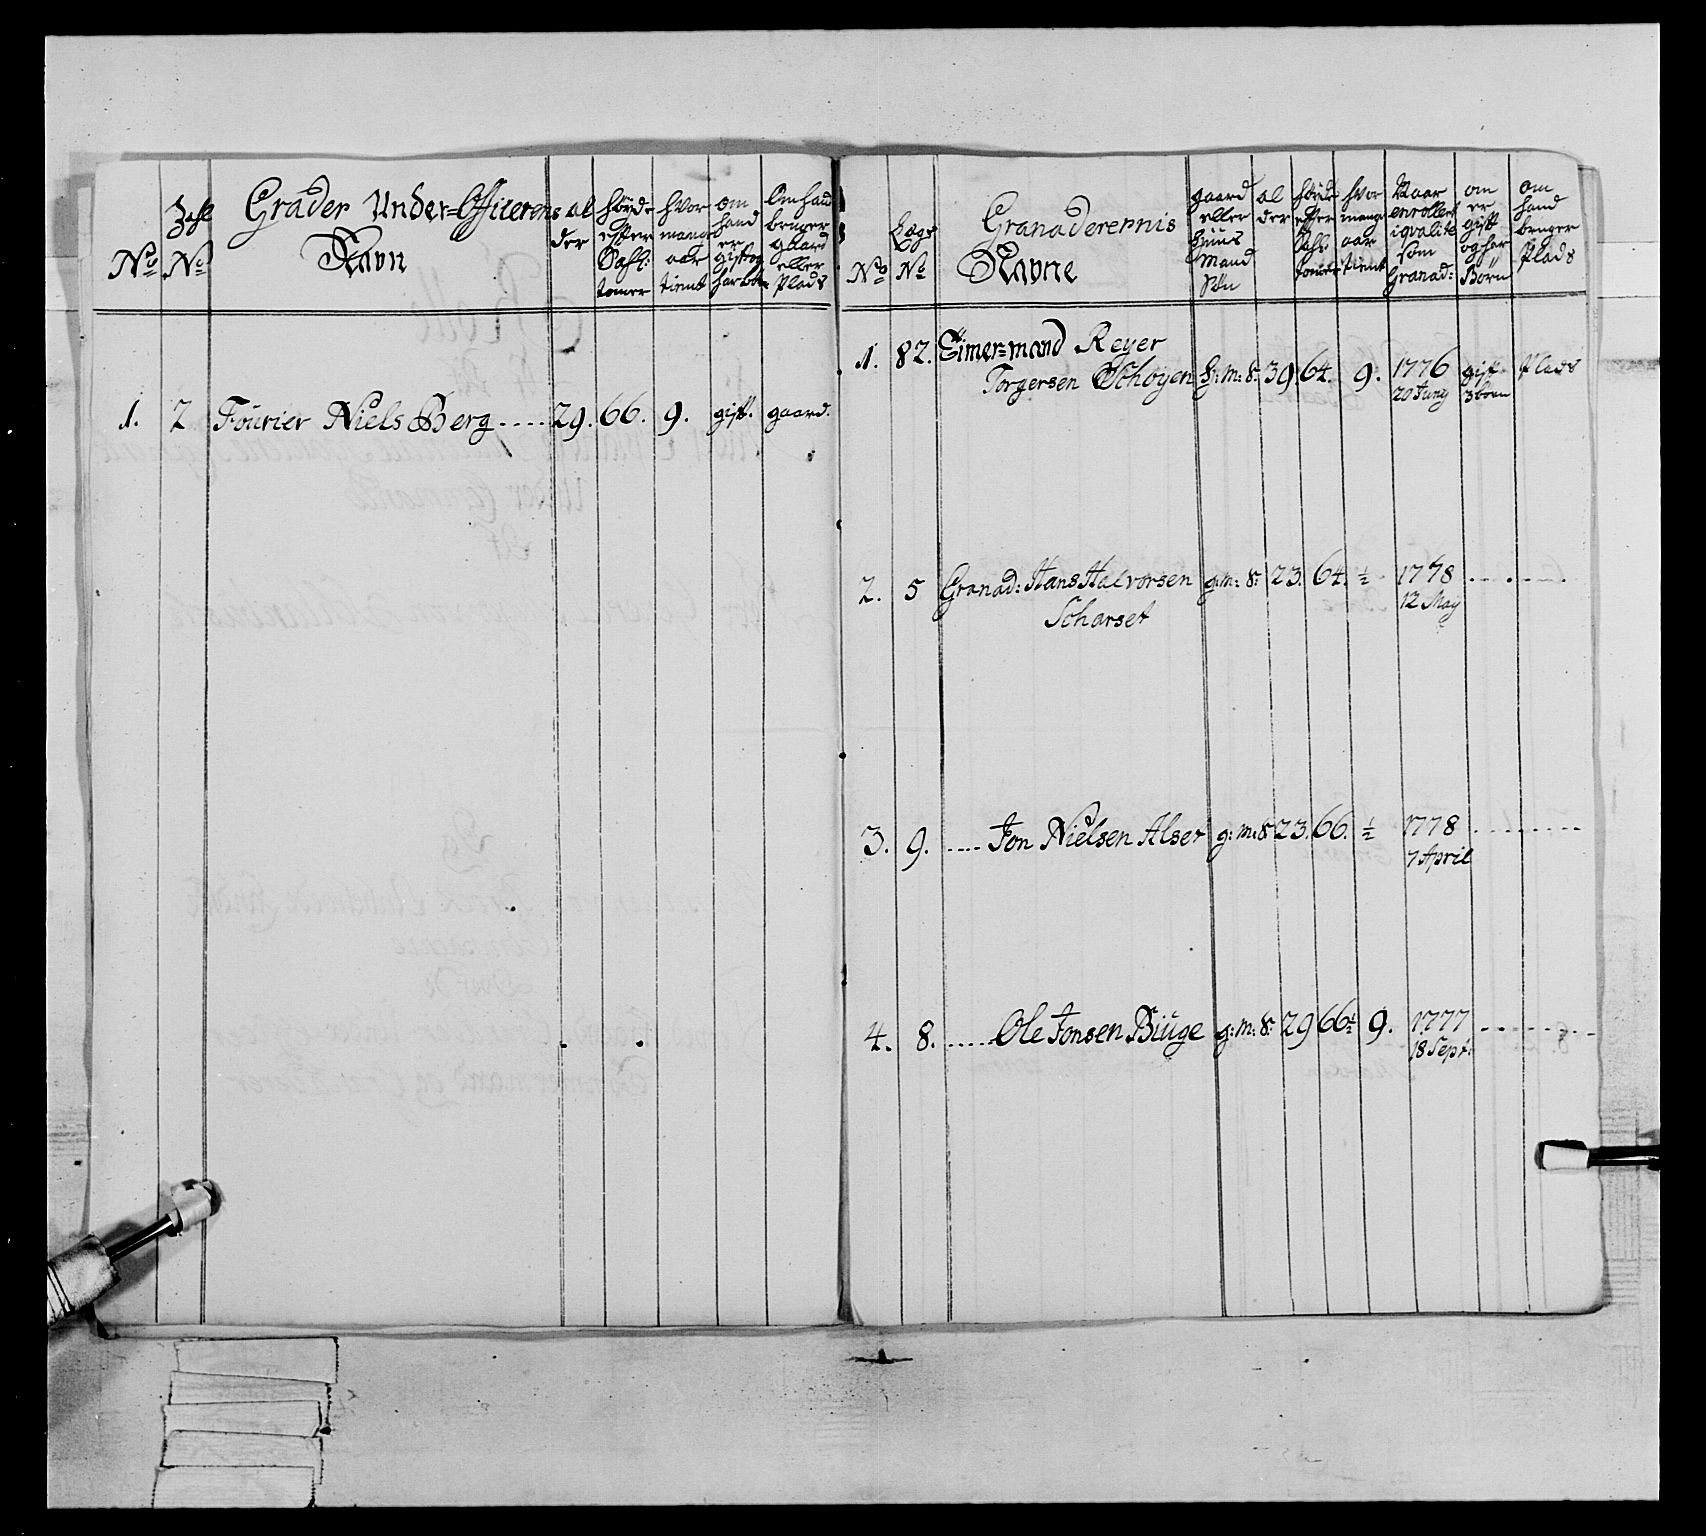 No
Zahl No
Grader Under=Officerens Navn
al der
høyde efter Sahl: tomer
hvor mange aar tient
om hand er gift og har børn
Om hand bruger gaard eller Plads
1. 2 Fourier Niels Berg .... 29. 66. 9. gift. gaard.
No
Lægs No
Granaderernis Navne
gaard eller huus Mand Søn
al der
høyde efter Sahl: tomer
hvor mange aar tient
Naar enrollert i qvalite som Granad:
om er gift og har Børn
om hand bruger Plads
1. 82. Timer=mand Reyer h: m: S: 39. 64. 9. 1776 gift Plads
Torgersen Schøyen 20 Juny 3 børn
2. 5 Granad: Hans Halvorsen g: m: S: 23. 64. ½ 1778 . . . . .
Scharset 12 May
3. 9. .... Jon Nielsen Alset g: m: S 23. 66. ½ 1778 . . . . . .
7 April
4. 8. ..... Ole Jonsen Biuge g: m: S: 29 66½ 9. 1777 . . . . . .
18 Sept: